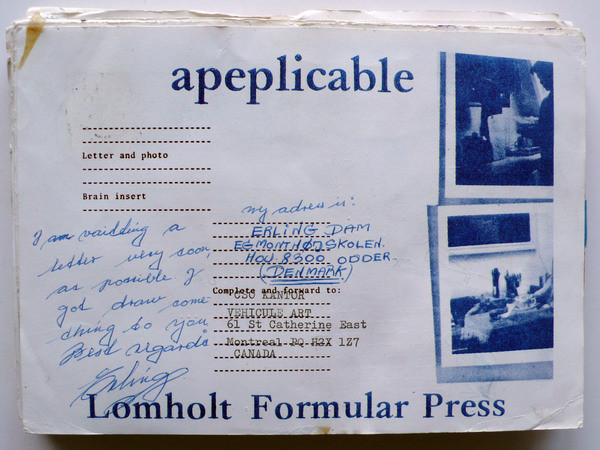 apeplicable
Letter and photo
Brain insert
I am vaidding a
letter very soon,
as possible I
got draw some
thing to you
Best regards
Erling
my adress is:
ERLING DAM
EGMONTHØJSKOLEN.
HOU 8300 ODDER.
(DENMARK)
Complete and forward to:
CSO KANTOR
VEHICULE ART
61 St Catherine East
Montreal PQ H2X 1Z7
CANADA
Lomholt Formular Press